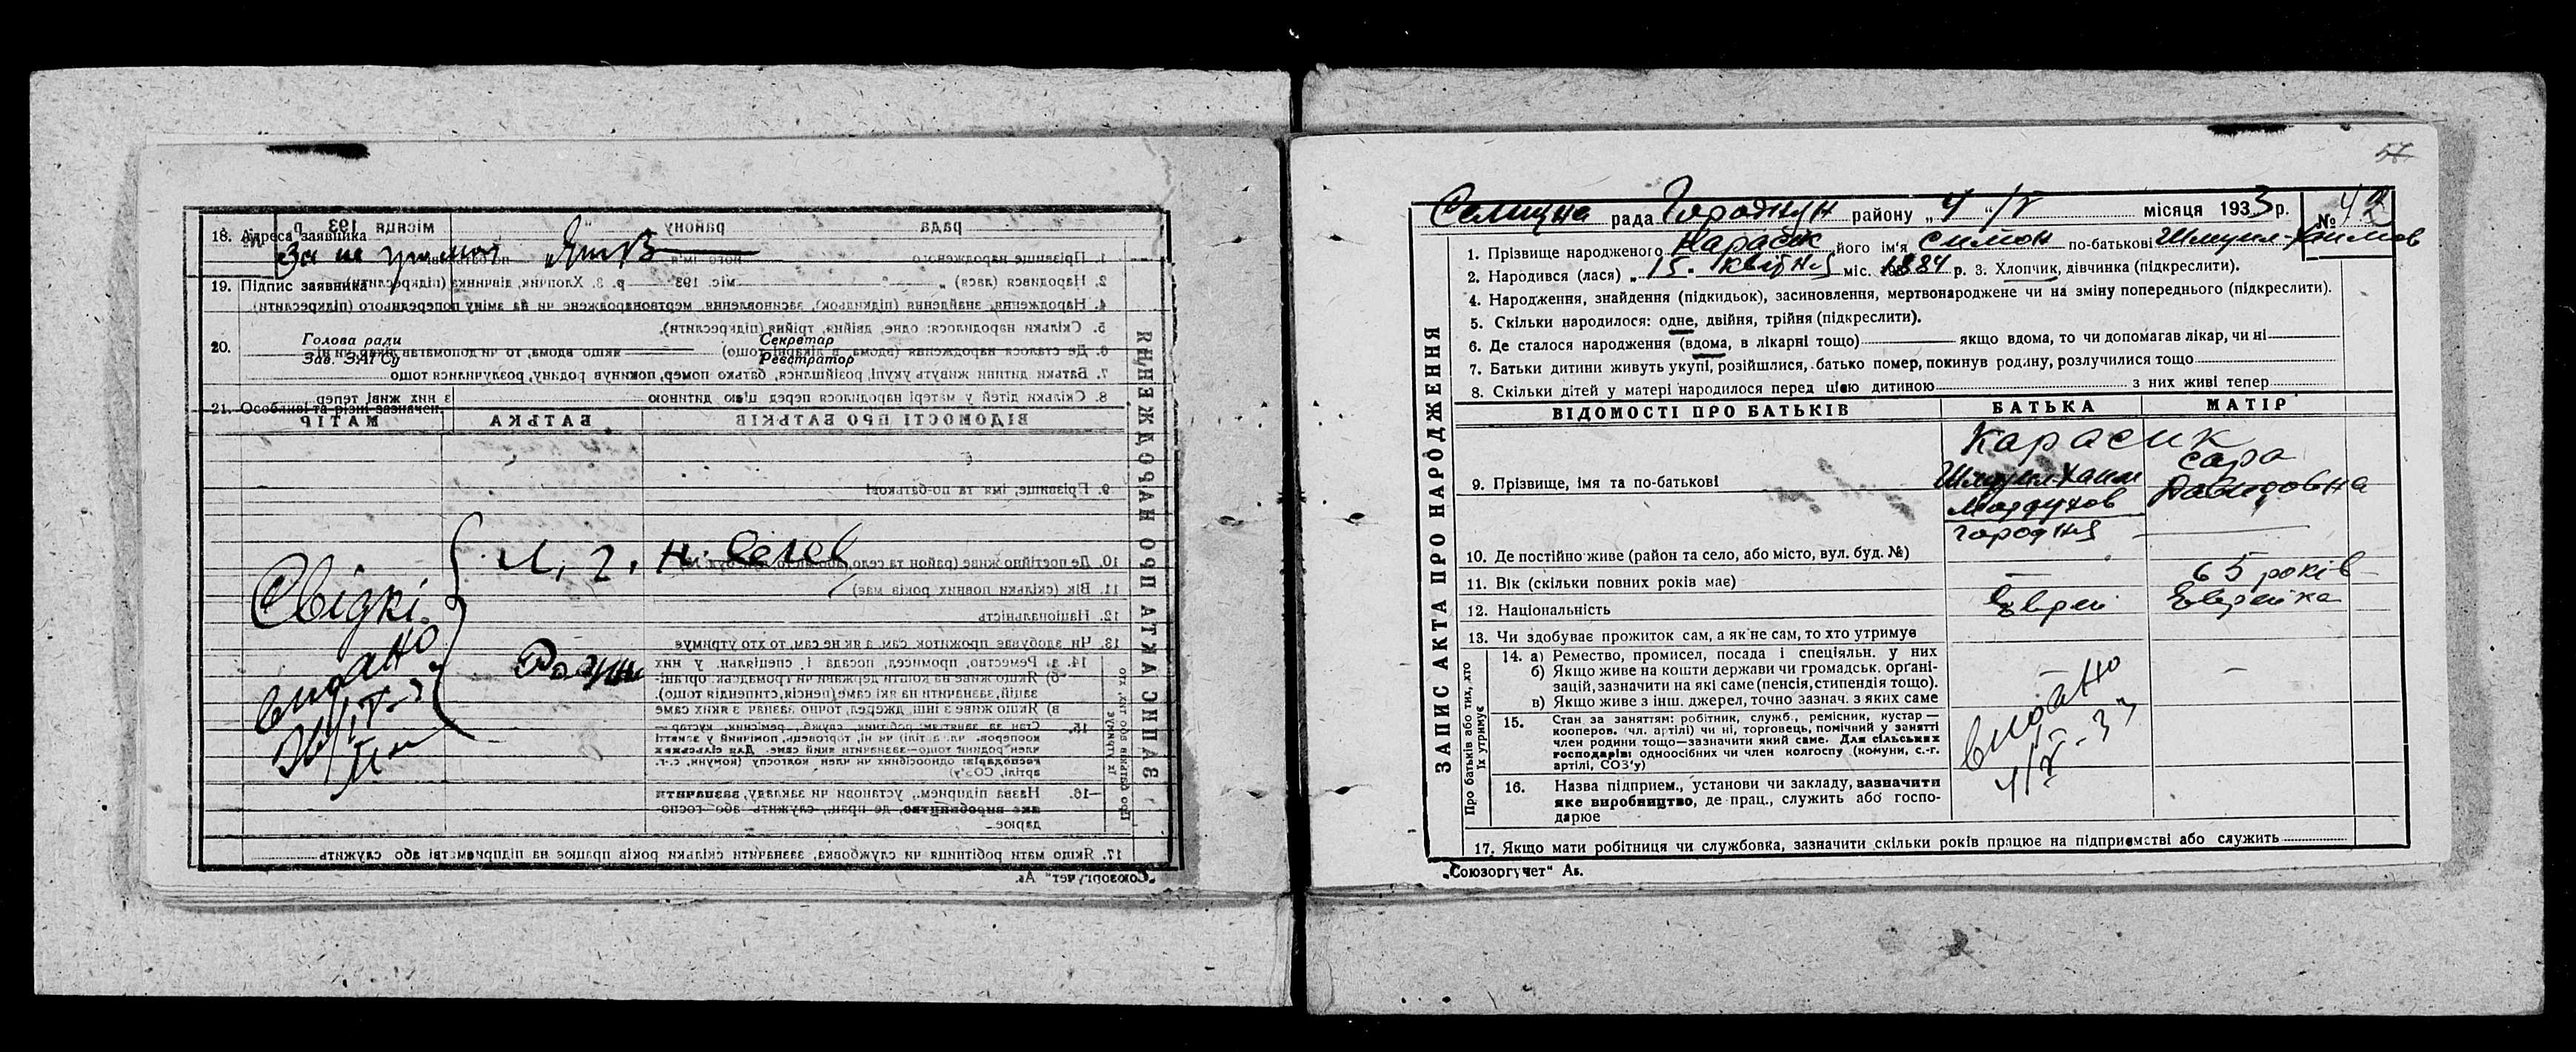 18. Адреса заявника
За не грамот
19. Підпис заявника
20. Голова ради Секретар
Зав. ЗАГСу Реєстратор
21. Особливі та різні зазначен.
Свідкі:
видано
57
Селищна рада Городнян району „4“ /V місяця 1933 р. № 42
ЗАПИС АКТА ПРО НАРОДЖЕННЯ
1. Прізвище народженого Карасік його ім'я Симон по-батькові Шмуил-Хаимов
2. Народився (лася) „15. квітня міс. 1884 р. 3. Хлопчик, дівчинка (підкреслити).
4. Народження, знайдення (підкидьок), засиновлення, мертвонароджене чи на зміну попереднього (підкреслити).
5. Скільки народилося: одне, двійня, трійня (підкреслити).
6. Де сталося народження (вдома, в лікарні тощо) якщо вдома, то чи допомагав лікар, чи ні
7. Батьки дитини живуть укупі, розійшлися, батько помер, покинув родину, розлучилися тощо
8. Скільки дітей у матері народилося перед цією дитиною з них живі тепер
ВІДОМОСТІ ПРО БАТЬКІВ БАТЬКА МАТІР
Карасик
9. Прізвище, імя та по-батькові Шмуил-Хаим Мордухов Сара Давидовна
10. Де постійно живе (район та село, або місто, вул. буд. №) Городня
11. Вік (скільки повних років має) — 65 років
12. Національність Єврей Єврейка
13. Чи здобуває прожиток сам, а як не сам, то хто утримує
Про батьків або тих, хто їх утримує
14. а) Ремество, промисел, посада і спеціяльн. у них
б) Якщо живе на кошти держави чи громадськ. органі-
зацій, зазначити на які саме (пенсія, стипендія тощо).
в) Якщо живе з інш. джерел, точно зазнач. з яких саме
15. Стан за заняттям: робітник, служб., ремісник, кустар —
кооперов. (чл. артілі) чи ні, торговець, помічний у занятті
член родини тощо—зазначити який саме. Для сільських
господарів: одноосібних чи член колгоспу (комуни, с.-г.
артілі, СОЗ'у)
видано
4/V-33
16. Назва підприєм., установи чи закладу, зазначити
яке виробництво, де прац., служить або госпо-
дарює
17. Якщо мати робітниця чи службовка, зазначити скільки років працює на підприємстві або служить
„Союзоргучет“ Ав.